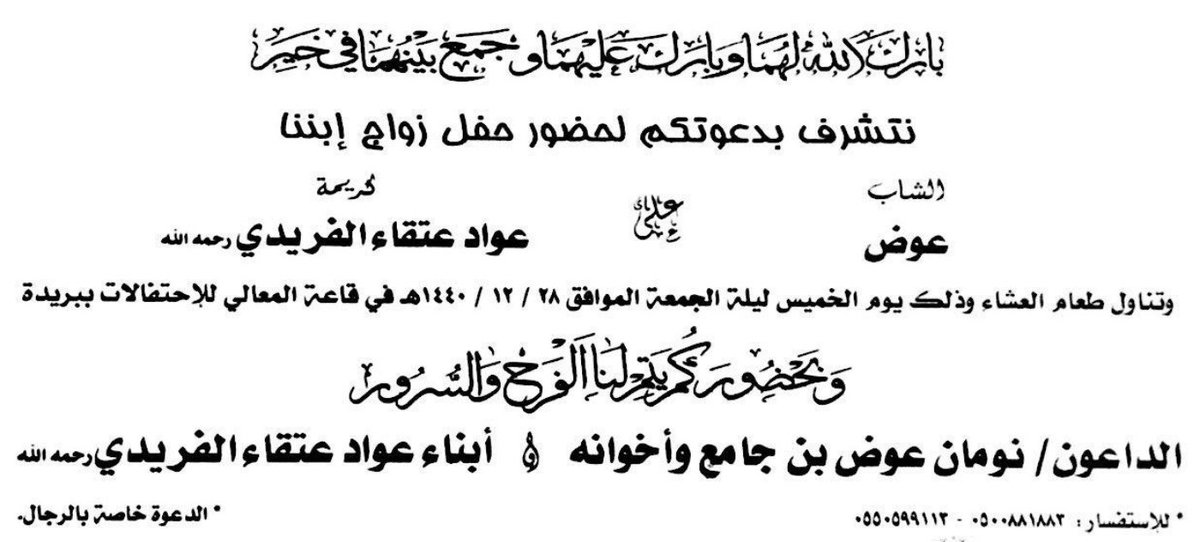 بارك الله لهما وبارك عليهما وجمع بينهما في خير
نتشرف بدعوتكم لحضور حفل زواج إبننا
الشاب كريمة
عوض على عواد عتقاء الفريدي رحمه الله
وتناول طعام العشاء وذلك يوم الخميس ليلة الجمعة الموافق ٢٨ / ١٢ / ١٤٤٠هـ في قاعة المعالي للإحتفالات ببريدة
وبحضوركم يتم لنا الفرح والسرور
الداعون/ نومان عوض بن جامع وأخوانه و أبناء عواد عتقاء الفريدي رحمه الله
* للإستفسار: ٠٥٠٠٨٨١٨٨٣ - ٠٥٥٠٥٩٩١١٣ * الدعوة خاصة بالرجال.